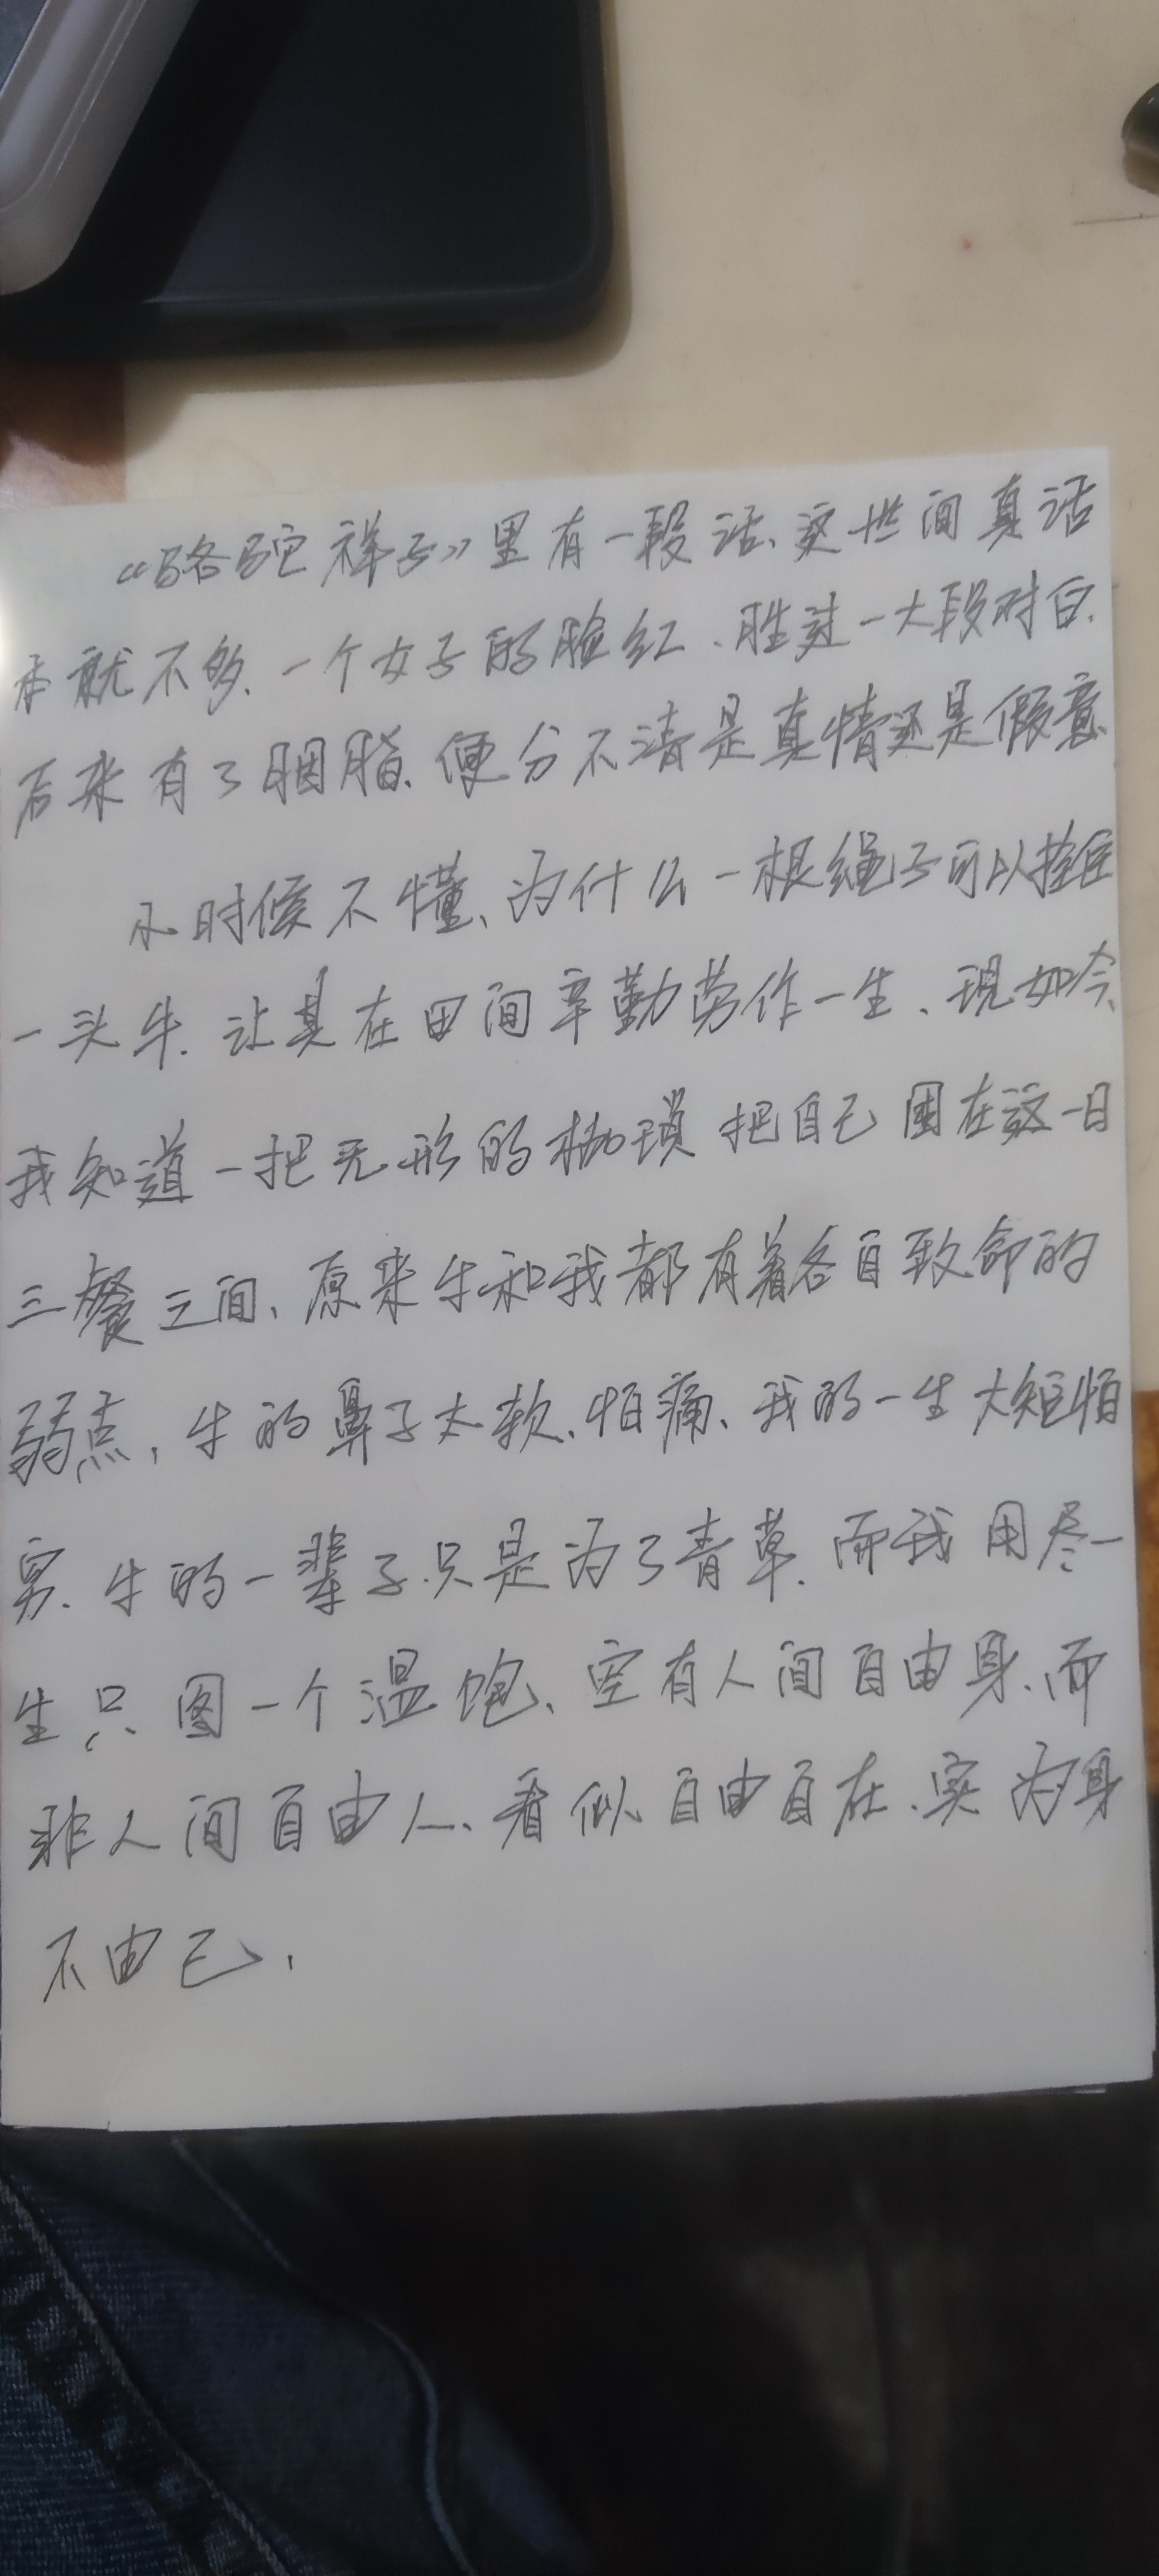 《骆驼祥子》里有一段话、这世间真话
本就不多、一个女子的脸红、胜过一大段对白.
后来有了胭脂、便分不清是真情还是假意
小时候不懂、为什么一根绳子可以拴住
一头牛. 让其在田间辛勤劳作一生、现如今、
我知道一把无形的枷锁把自己困在这一日
三餐之间、原来牛和我都有着各自致命的
弱点, 牛的鼻子太软、怕痛、我的一生太短怕
穷. 牛的一辈子只是为了青草. 而我用尽一
生只图一个温饱、空有人间自由身、而
非人间自由人、看似自由自在、实为身
不由己,